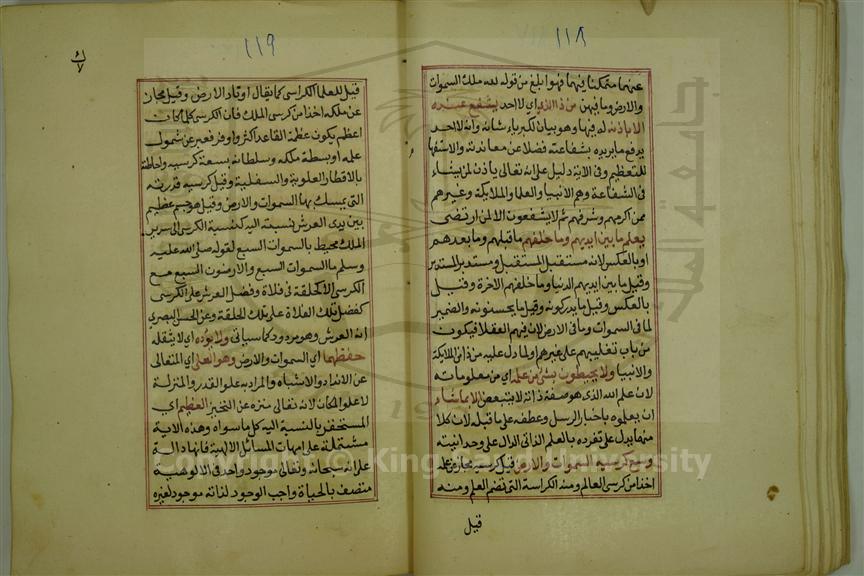 ١١٨
عنهما متمكنا فيهما فهوا بلغ من قوله له ملك السموات
والارض وما فيهن من ذا الذي اي لا احد يشفع عنده
الا باذنه له فيها وهو بيان لكبرياء شانه وانه لا احد
يدفع ما يريده بشفاعته فضلا عن معاندته والاستفهام
للتعظيم وفى الاية دليل على انه تعالى ياذن لمن يشاء
فى الشفاعة وهم الانبيا والعلما والملايكة وغيرهم
ممن اكرمهم وشرفهم ثم لا يشفعون الا لمن ارتضى
يعلم ما بين ايديهم وما خلفهم ما قبلهم وما بعدهم
او بالعكس لانه مستقبل المستقبل ومستدبر المستدبر
وقيل ما بين ايديهم الدنيا وما خلفهم الاخرة وقيل
بالعكس وقيل ما يدركونه وقيل ما يحسنونه والضمير
لما فى السموات وما فى الارض لان فيهم العقلا فيكون
من باب تغليبهم على غيرهم او لما دل عليه من ذا من الملايكة
والانبيا ولا يحيطون بشئ من علمه اي من معلوماته
لان علم الله الذى هو صفة ذاته لا يتبعض الا بما شاء
ان يعلموه باخبار الرسل وعطفه على ما قبله لان كلا
منهما يدل على تفرده بالعلم الذاتى الدال على وحدانيته
وسع كرسيه السموات والارض قيل كرسيه مجاز عن علمه
اخذا من كرسى العالم ومنه الكراسة التى تضم العلم ومنه
قيل
١١٩
قيل للعلما الكراسى كما يقال اوتاد الارض وقيل مجاز
عن ملكه اخذا من كرسى الملك فان الكرسى كلما كان
اعظم يكون عظمة القاعد اكثر واوفر فعبر عن شمول
علمه او بسطة ملكه وسلطانه بسعة كرسيه واحاطته
بالاقطار العلوية والسفلية وقيل كرسيه قدرته
التى يمسك بها السموات والارض وقيل هو جسم عظيم
بين يدى العرش نسبته اليه كنسبة الكرسى الى سرير
الملك محيط بالسموات السبع لقوله صلى الله عليه
وسلم ما السموات السبع والارضون السبع مع
الكرسى الا كحلقة فى فلاة وفضل العرش على الكرسى
كفضل تلك الفلاة على تلك الحلقة وعن الحسن البصري
انه العرش وهو مردود كما سياتى ولا يؤده اي لا يثقله
حفظهما اي السموات والارض وهو العلى اي المتعالى
عن الانداد والاشباه والمراد به علو القدر والمنزلة
لا علو المكان لانه تعالى منزه عن التحيز العظيم اي
المستحقر بالنسبة اليه كل ما سواه وهذه الاية
مشتملة على امهات المسائل الالهية فانها دالة
على انه سبحانه وتعالى موجود واحد فى الالوهية
متصف بالحياة واجب الوجود لذاته موجود لغيره
Copyright © King Saud University